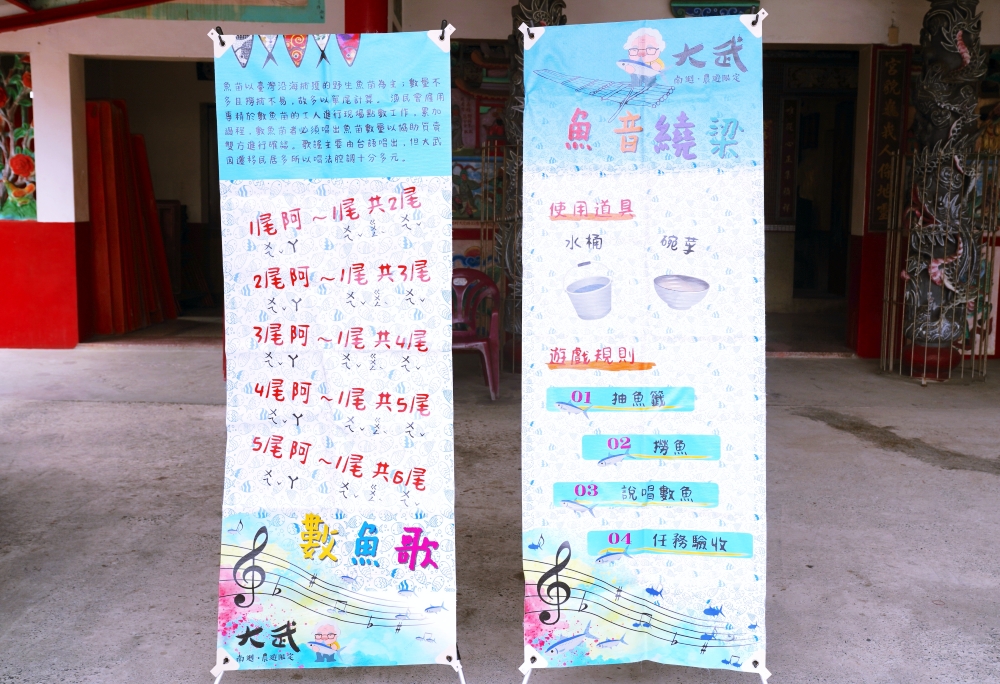 魚苗以臺灣沿海捕獲的野生魚苗為主；數量不
多且撈捕不易，故多以單尾計算。漁民會雇用
專精於數魚苗的工人進行現場點數工作，累加
過程，數魚苗者必須唱出魚苗數量以協助買賣
雙方進行確認。歌謠主要由台語唱出，但大武
因遷移民居多所以唱法腔調十分多元。
1尾阿～1尾共2尾
ㄨㄟˇㄚ ㄨㄟˇ ㄍㄥˊ ㄨㄟˇ
2尾阿～1尾共3尾
ㄨㄟˇㄚ ㄨㄟˇ ㄍㄥˊ ㄨㄟˇ
3尾阿～1尾共4尾
ㄨㄟˇㄚ ㄨㄟˇ ㄍㄥˊ ㄨㄟˇ
4尾阿～1尾共5尾
ㄨㄟˇㄚ ㄨㄟˇ ㄍㄥˊ ㄨㄟˇ
5尾阿～1尾共6尾
ㄨㄟˇㄚ ㄨㄟˇ ㄍㄥˊ ㄨㄟˇ
數魚歌
大武
南迴・農遊限定
大武
南迴・農遊限定
魚音繞梁
使用道具
水桶 碗菜
遊戲規則
01 抽魚籤
02 撈魚
03 說唱數魚
04 任務驗收